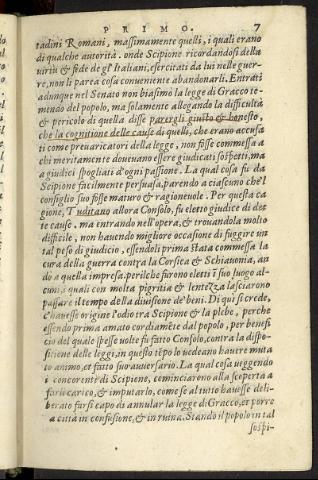 PRIMO. 7
tadini Romani, massimamente quelli, i quali erano
di qualche autorità. onde Scipione ricordandosi della
uirtù & fede de gl'Italiani, esercitati da lui nelle guer-
re, non li parea cosa conueniente abandonarli. Entrati
adunque nel Senato non biasimo la legge di Gracco te-
mendo del popolo, ma solamente allegando la difficultà
& pericolo di quella disse parergli giusto & honesto,
che la cognitione delle cause di quelli, che erano accusa
ti come preuaricatori della legge, non fosse commessa a
chi meritamente doueuano essere giudicati sospetti, ma
a giudici spogliati d'ogni passione. La qual cosa fu da
Scipione facilmente persuasa, parendo a ciascuno che'l
consiglio suo fosse maturo & ragioneuole. Per questa ca
gione, Tuditano allora Consolo, fu eletto giudice di det
te cause. ma entrando nell'opera, & trouandola molto
difficile, non hauendo migliore occasione di fuggire un
tal peso di giudicio, essendoli prima stata commessa la
cura della guerra contra la Corsica & Schiauonia, an
dò a quella impresa. perilche furono eletti i suo luogo al-
cuni, i quali con molta pigritia & lentezza lasciarono
passare il tempo della diuisione de' beni. Di qui si crede,
c'hauesse origine l'odio tra Scipione & la plebe, perche
essendo prima amato cordiamẽte dal popolo, per benefi
cio del quale spesse uolte fu fatto Consolo, contra la dispo-
sitione delle leggi, in questo tẽpo lo uedeano hauere muta
to animo, et fatto suo auuersario. La qual cosa ueggendo
i concorrenti di Scipione, cominciarono alla scoperta a
farli carico, & imputarlo, come se al tutto hauesse deli-
berato farsi capo di annular la legge di Gracco, et porre
a città in confusione, & in ruina. Stando il popolo in tal
sospi-